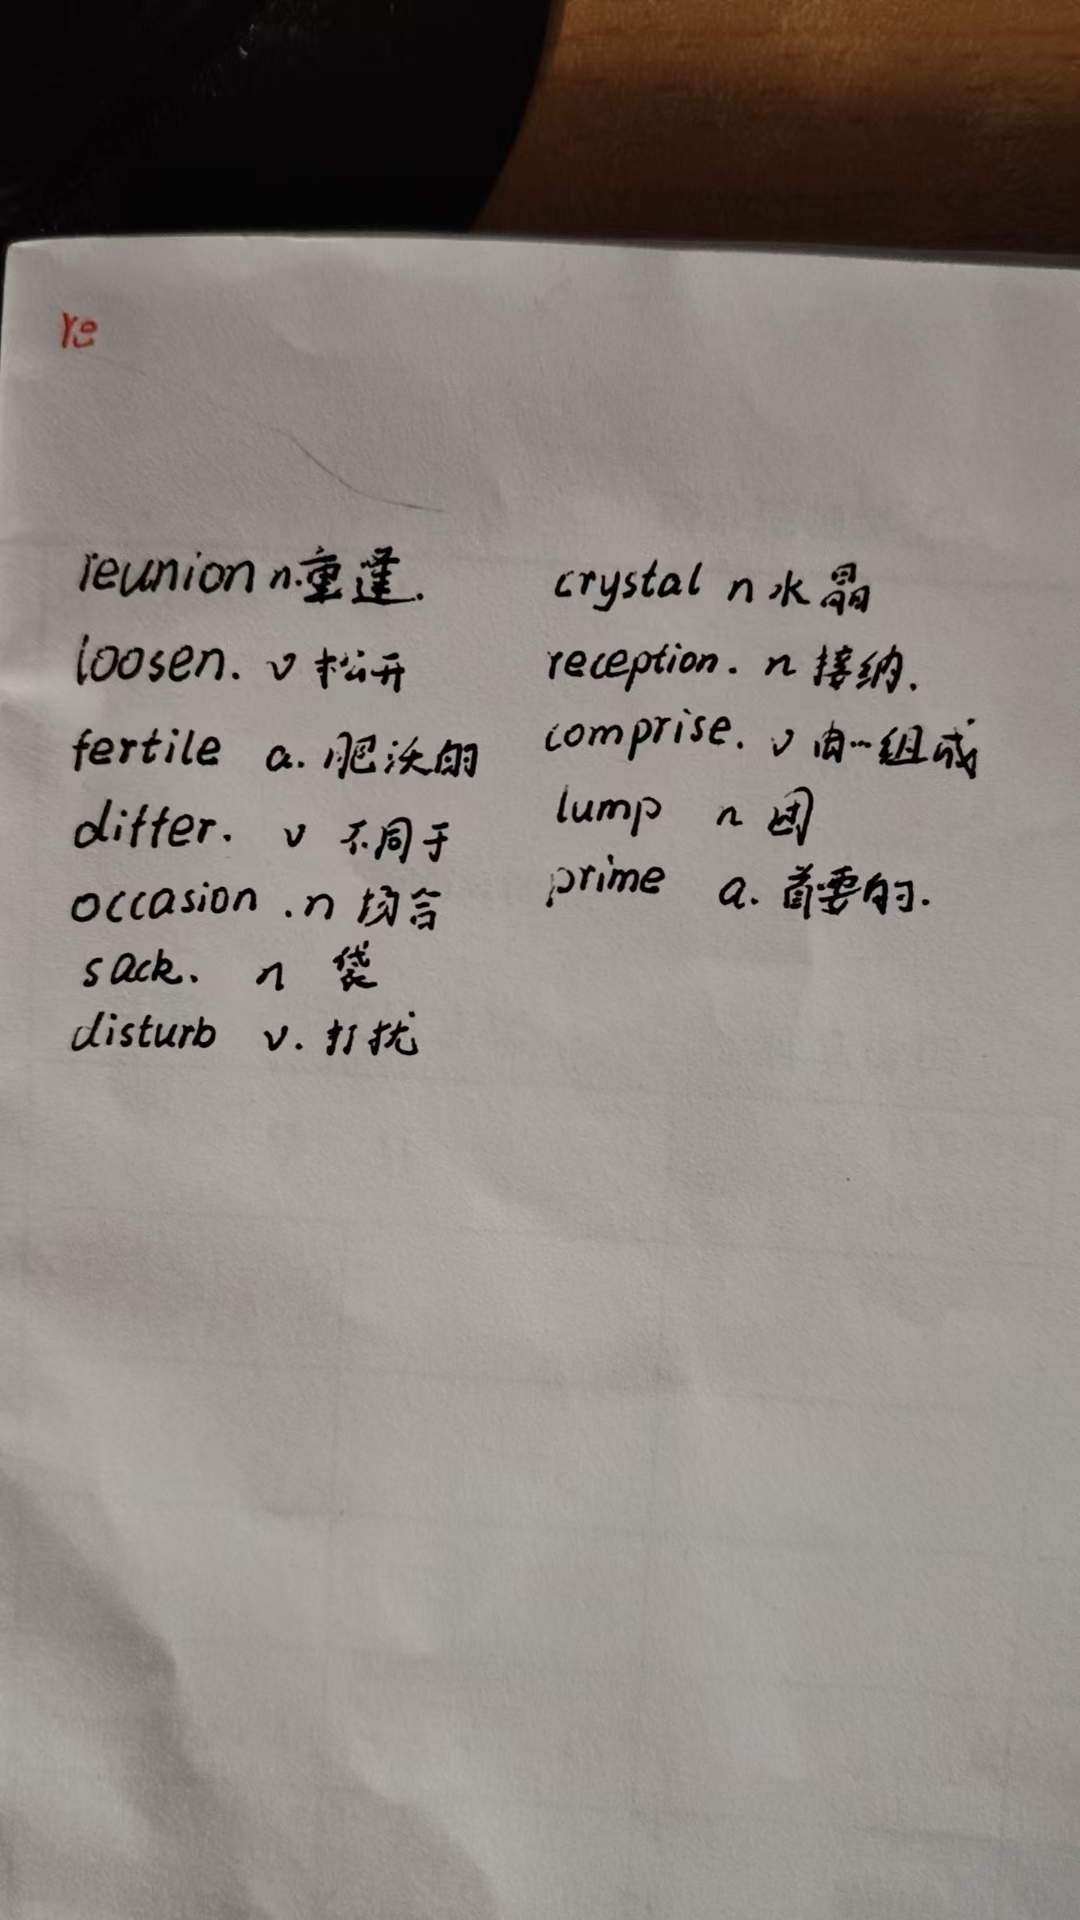 reunion n.重逢.
loosen. v 松开
fertile a. 肥沃的
differ. v 不同于
occasion . n 场合
sack. n 袋
disturb v. 打扰
crystal n 水晶
reception. n 接纳.
comprise. v 由…组成
lump n 团
prime a. 首要的.